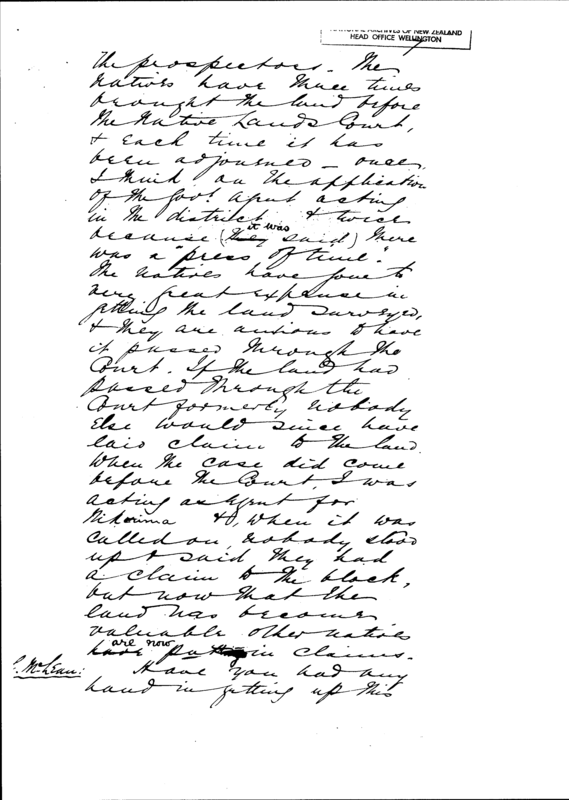 NATIONAL ARCHIVES OF NEW ZEALAND
HEAD OFFICE WELLINGTON
the prospectors. The
natives have three times
brought the land before
the Native Lands Court,
& each time it has
been adjourned – once,
I think on the application
of the Govt. agent acting
in the district & twice
because (they it was said) there
was a "press of time".
The natives have gone to
very great expense in
getting the land surveyed,
& they are anxious to have
it passed through the
Court. If the land had
passed through the
Court formerly nobody
else would since have
laid claim to the land.
When the case did come
before the Court, I was
acting as Agent for
&, when it was
called on, nobody stood
up & said they had
a claim to the block,
but now that the
land has become
valuable other natives
have are now putting in claims.
McLean: Have you had any
hand in getting up this